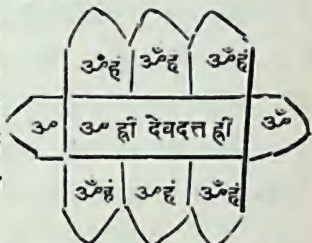 ॐहं ॐहं ॐहं
ॐ ॐ ह्रीं देवदत्त ह्रीं ॐ
ॐहं ॐहं ॐहं